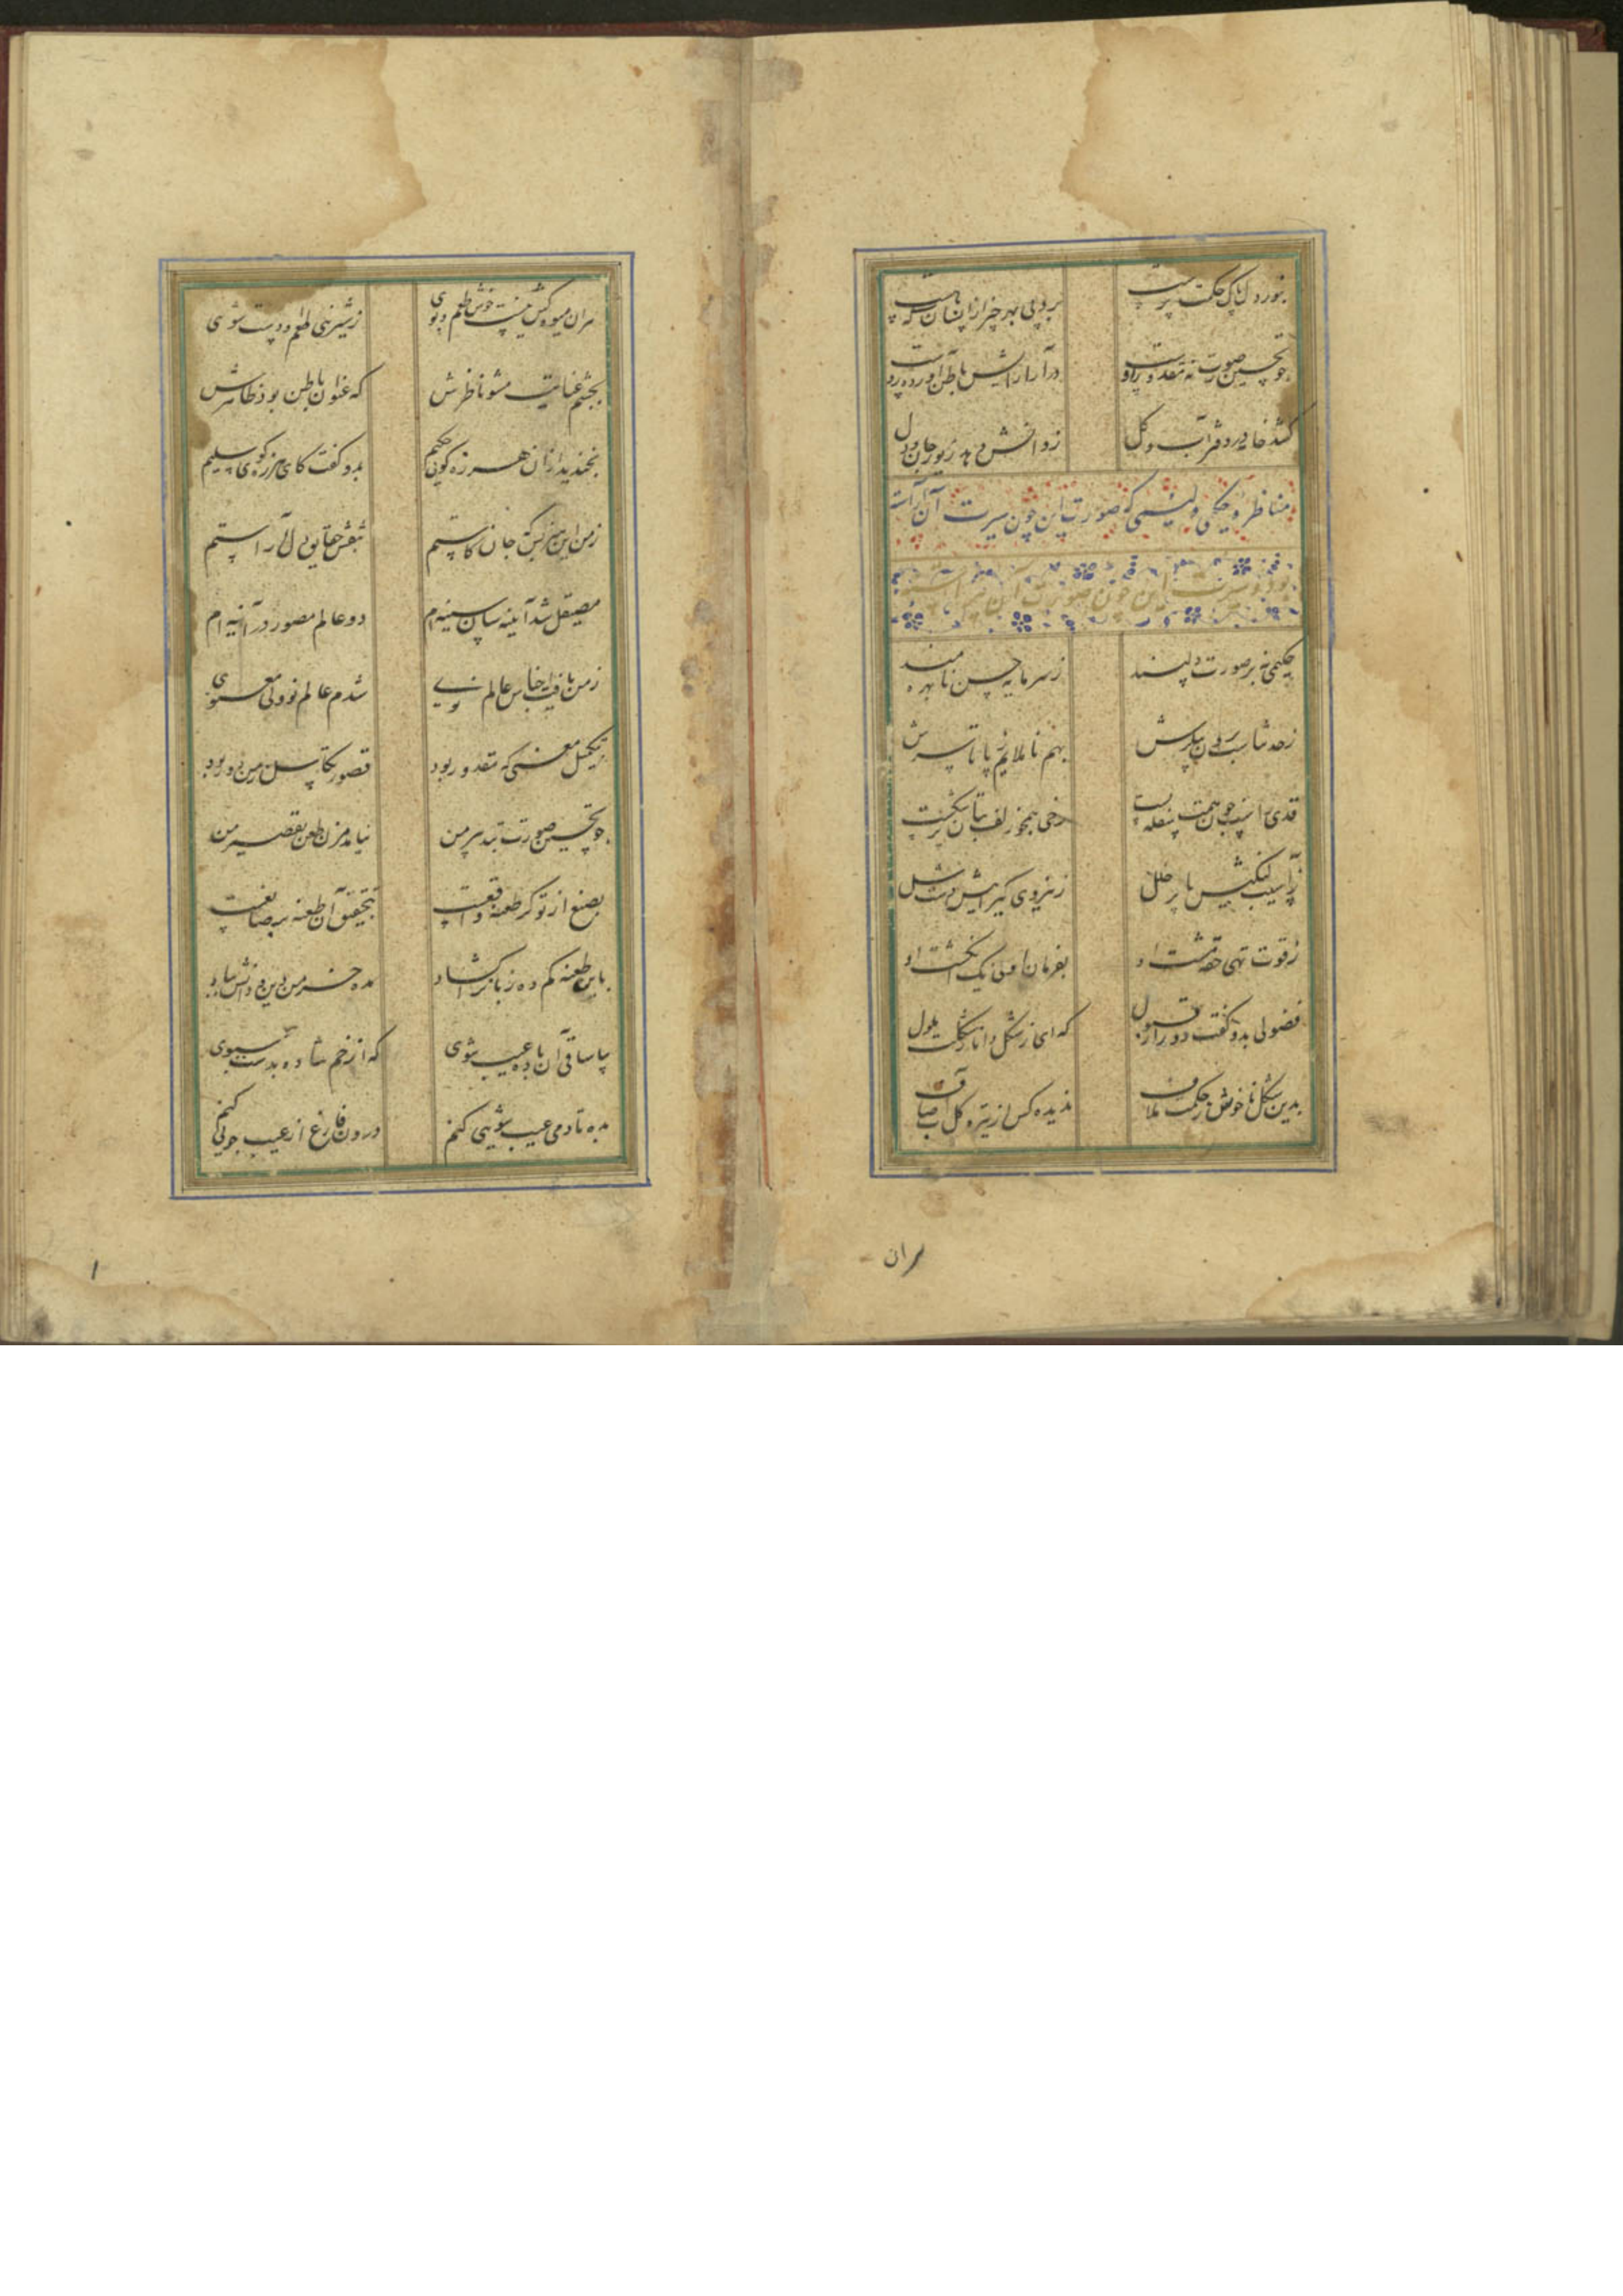 بنور دل پاک حکمت پرست
برد پی بهر چیز از انسان که هست
چو تحسین صورت نه مقدور اوست
در آرایش باطن آورده رو
کشد خامه در دفتر آب و گل
ز دانش دهد زیور جان و دل
مناظره حکیمی و لئیمی که صورت این چون سیرت آن آراسته
بود و سیرت این چون صورت آن
حکیمی نه بر صورت دلپسند
ز سرمایه حسن نابهره مند
ز حد تناسب برون پیکرش
بهم ناملایم ز پا تا سرش
قدی راست چون همت سفله پست
رخی همچو زلف بتان پرشکست
ز آسیب لنگیش پا پر خلل
ز نیروی گیراییش دست شل
ز قوت تهی حقه مشت او
بفرمان او نی یک انگشت او
فضولی بدو گفت دور از قبول
که ای از تو شکل دانا ملول
بدین شکل ناخوش ز حکمت ملاف
ندیده کس از تیره گل آب صاف
مران میوه کش نیست خوش طعم و بوی
ز شیرینی طعم او دست شوی
بچشم عنایت مشو ناظرش
که عنوان باطن بود ظاهرش
بخندید از آن هرزه گویی حکیم
بدو گفت کای هرزه گوی سلیم
ز من این سزد کین که جان کاستم
بنقش حقایق دل آراستم
مصیقل شد آیینه سان سینه ام
دو عالم مصور در آیینه ام
شدم عالم نو ولی معنوی
بتکمیل معنی که مقدور بود
قصور و تکاسل ز من دور بود
چو تحسین صورت بتدبیر من
نیامد مزن طعن تقصیر من
بصنع از تو گر طعنه واقعست
بتحقیق آن طعنه بر صانعست
باین طعنه کم ده زبان را گشاد
مده خرمن دین و دانش بباد
بیا ساقی آن باده عیب شوی
که از خم فتاده بدست سبوی
بده تا دمی عیب شویی کنم
درون فارغ از عیب جویی کنم
مران